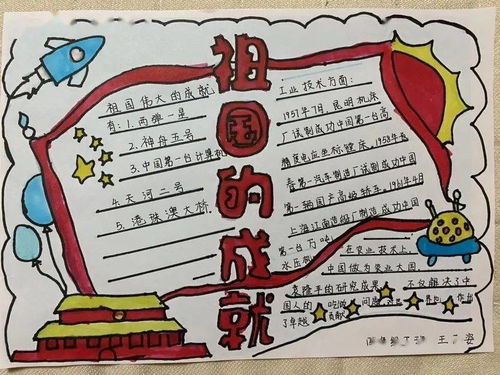 祖国的成就
祖国伟大的成就
有：1.两弹一星
2.神舟五号
3.中国第一台计算机
4.天河二号
5.港珠澳大桥.
工业技术方面：
1957年7月,昆明机床
厂试制成功中国第一台高
精度 坐标镗床.1958年
春第一汽车制造厂试制成功中国
第一辆国产高 轿车.1961年4月
上海江南造船厂制造成功中国
第一台万吨
水压机 在农业技术上,
中国做为农业大国,
袁隆平的研究成果 不仅解决了中
国人的 吃 问题 作出
了卓越 贡献
王 姿